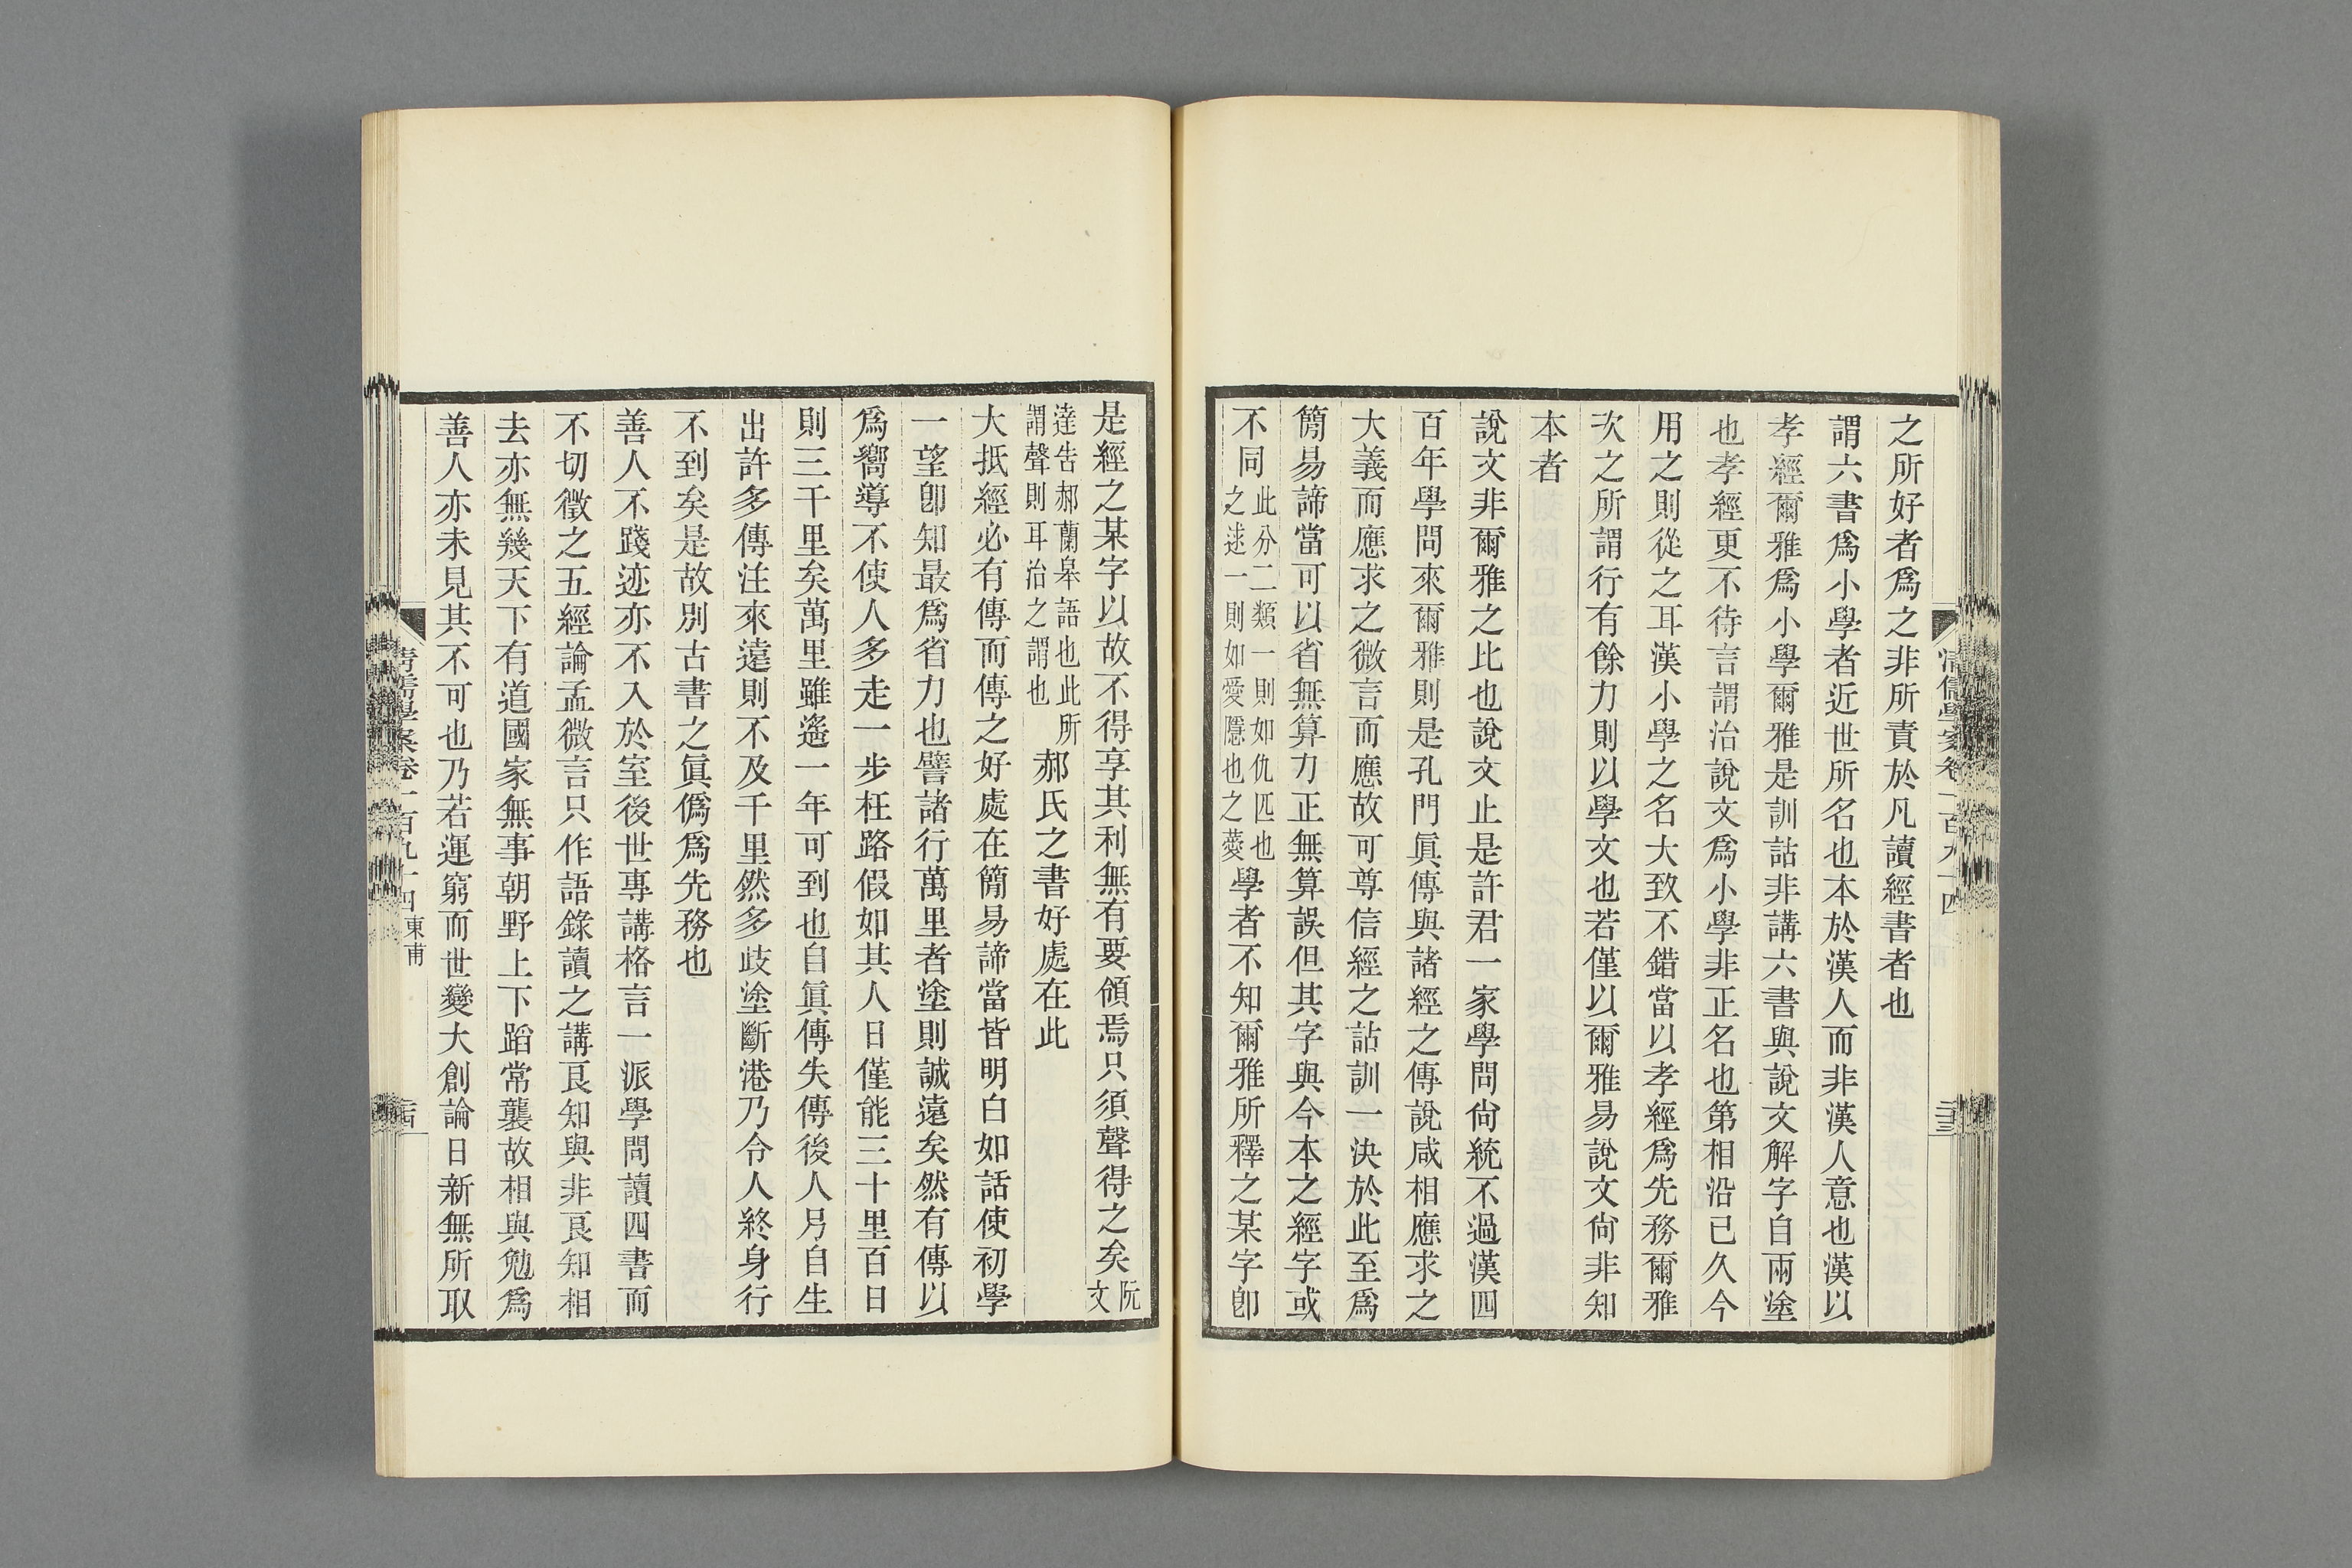 之所好者爲之非所責於凡讀經書者也
謂六書爲小學者近世所名也本於漢人而非漢人意也漢以
孝經爾雅爲小學爾雅是訓詁非講六書與說文解字自兩塗
也孝經更不待言謂治說文爲小學非正名也第相沿已久今
用之則從之耳漢小學之名大致不錯當以孝經爲先務爾雅
次之所謂行有餘力則以學文也若僅以爾雅易說文尙非知
本者
說文非爾雅之比也說文止是許君一家學問尙統不過漢四
百年學問來爾雅則是孔門眞傳與諸經之傳說咸相應求之
大義而應求之微言而應故可尊信經之詁訓一決於此至爲
簡易諦當可以省無算力正無算誤但其字與今本之經字或
不同此分二類一則如仇匹也之逑一則如愛隱也之薆學者不知爾雅所釋之某字卽
是經之某字以故不得享其利無有要領焉只須聲得之矣阮文
達告郝蘭皋語也此所謂聲則耳治之謂也郝氏之書好處在此
大抵經必有傳而傳之好處在簡易諦當皆明白如話使初學
一望卽知最爲省力也譬諸行萬里者塗則誠遠矣然有傳以
爲嚮導不使人多走一步枉路假如其人日僅能三十里百日
則三千里矣萬里雖遙一年可到也自眞傳失傳後人另自生
出許多傳注來遠則不及千里然多歧塗斷港乃令人終身行
不到矣是故別古書之眞僞爲先務也
善人不踐迹亦不入於室後世專講格言一派學問讀四書而
不切徵之五經論孟微言只作語錄讀之講良知與非良知相
去亦無幾天下有道國家無事朝野上下蹈常襲故相與勉爲
善人亦未見其不可也乃若運窮而世變大創論日新無所取
清儒學案卷一百九十四 東甫